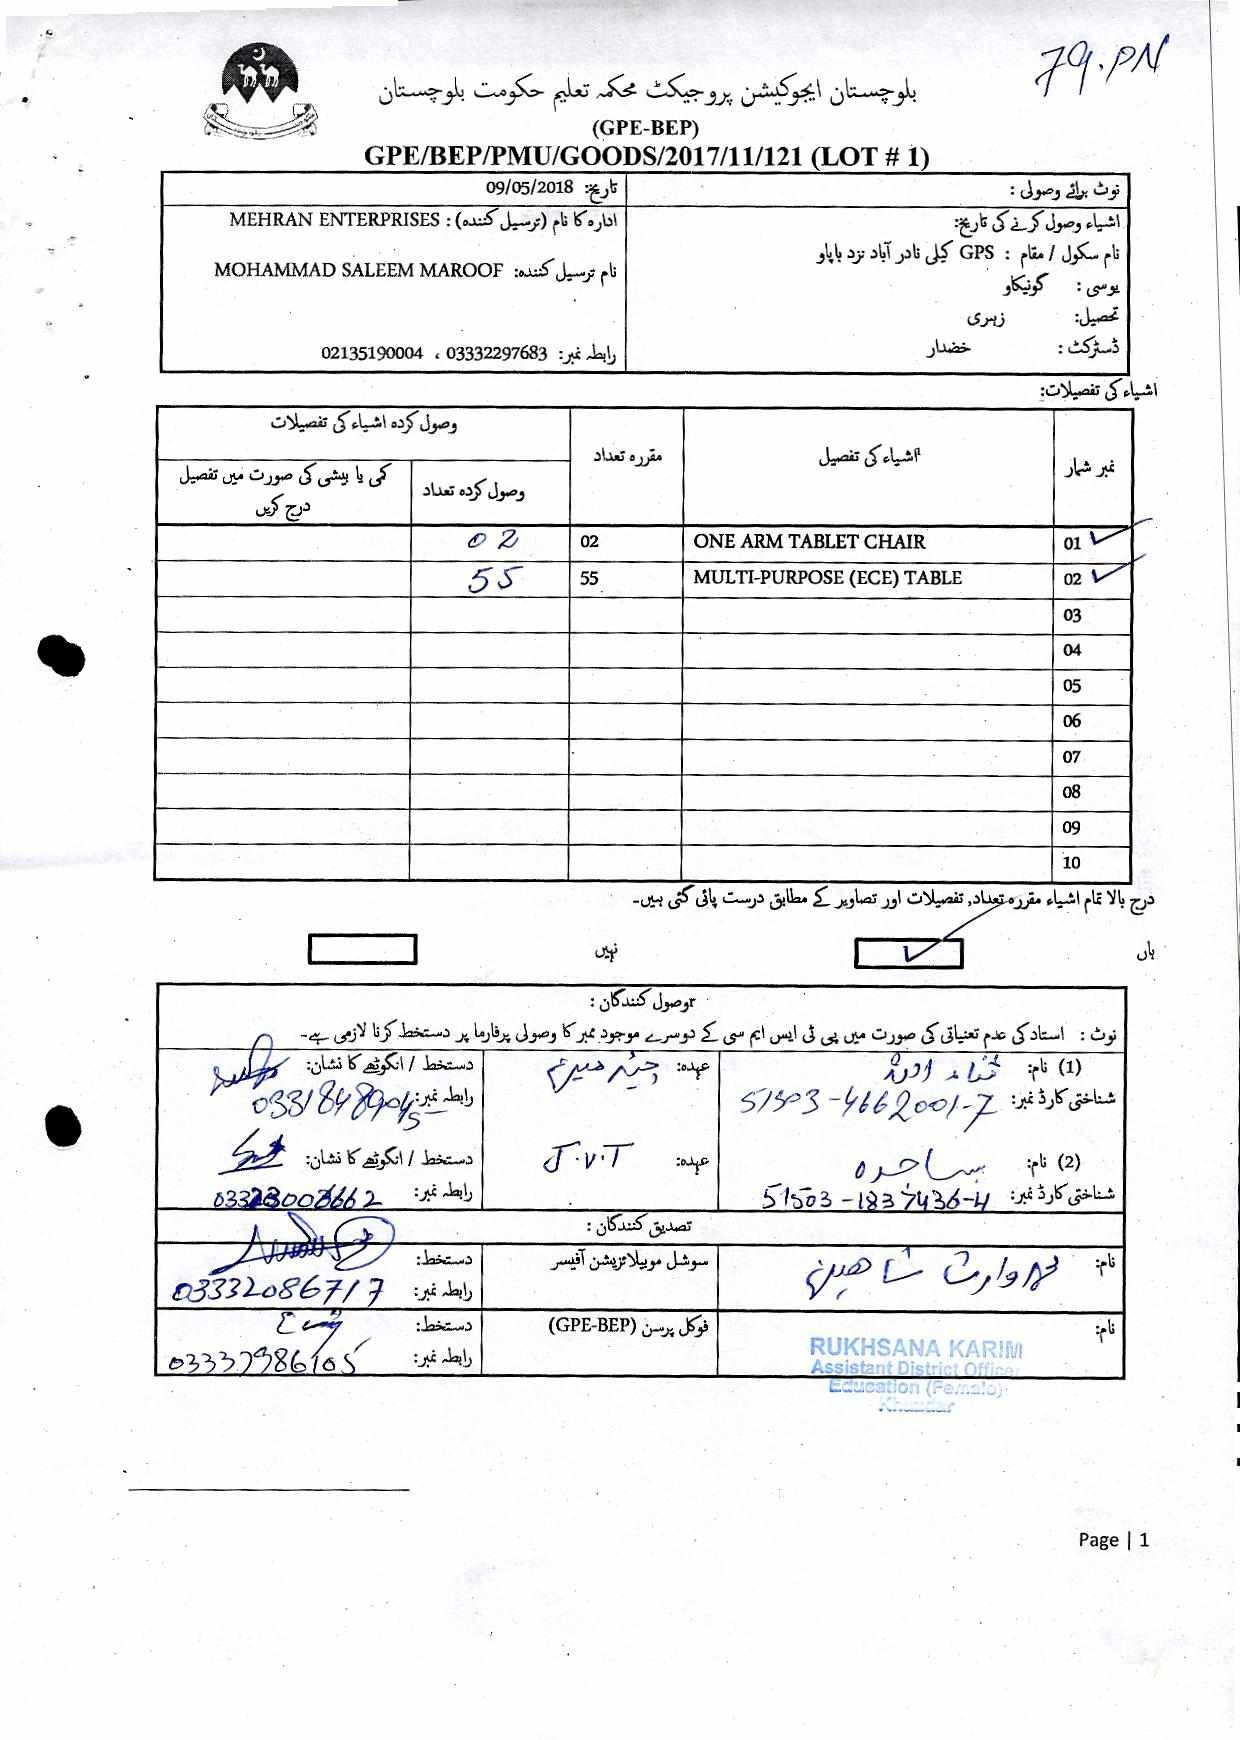 79.PN
بلوچستان ایجوکیشن پروجیکٹ محکمہ تعلیم حکومت بلوچستان
(GPE-BEP)
GPE/BEP/PMU/GOODS/2017/11/121 (LOT # 1)
نوٹ برائے وصولی :
تاریخ: 09/05/2018
اشیاء وصول کرنے کی تاریخ:
ادارہ کا نام (ترسیل کنندہ) : MEHRAN ENTERPRISES
نام سکول / مقام : GPS کلی نادر آباد نزد باپاو
نام ترسیل کنندہ: MOHAMMAD SALEEM MAROOF
یوسی : گونیکاو
تحصیل: زہری
ڈسٹرکٹ : خضدار
رابطہ نمبر: 03332297683 ، 02135190004
اشیاء کی تفصیلات:
نمبر شمار اشیاء کی تفصیل مقررہ تعداد وصول کردہ اشیاء کی تفصیلات
وصول کردہ تعداد کمی یا بیشی کی صورت میں تفصیل درج کریں
01 ONE ARM TABLET CHAIR 02 02
02 MULTI-PURPOSE (ECE) TABLE 55 55
03
04
05
06
07
08
09
10
درج بالا تمام اشیاء مقررہ تعداد, تفصیلات اور تصاویر کے مطابق درست پائی گئی ہیں۔
ہاں نہیں
وصول کنندگان :
نوٹ : استاد کی عدم تعنیاتی کی صورت میں پی ٹی ایس ایم سی کے دوسرے موجود ممبر کا وصولی پرفارما پر دستخط کرنا لازمی ہے۔
(1) نام: ثناء عہدہ: دستخط / انگوٹھے کا نشان:
شناختی کارڈ نمبر: 51503-4662001-7 رابطہ نمبر:
(2) نام: ساجدہ عہدہ: J.V.T دستخط / انگوٹھے کا نشان:
شناختی کارڈ نمبر: 51503-1837436-4 رابطہ نمبر:
تصدیق کنندگان :
نام: وارث شاھین سوشل موبیلائزیشن آفیسر دستخط:
رابطہ نمبر: 03332086717
نام: فوکل پرسن (GPE-BEP) دستخط:
رابطہ نمبر: 03337986105
RUKHSANA KARIM
Assistant District Officer
Education (Female)
Khuzdar
Page | 1